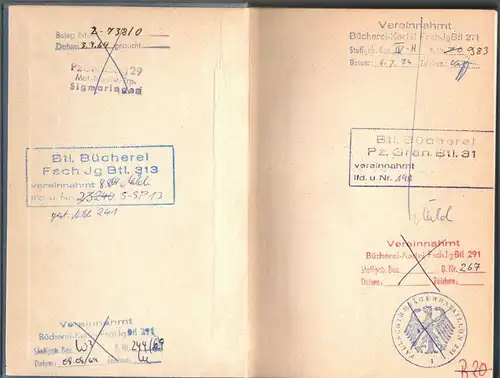 Beleg Nr. 2-733/0
Datum 3.7.64 gebucht
29
Sigmaringen
Btl. Bücherei
Fsch Jg Btl. 313
vereinnahmt
lfd. u Nr. S-SP 13
241
Vereinnahmt
Bücherei-Kartei Fsch Jg Btl 291
Stoffgeb. Bez. W3 B. Nr. 244/69
Datum: Zeichen:
Vereinnahmt
Bücherei-Kartei Fsch Jg Btl 271
Stoffgeb. Bez. IV-H B. Nr. 983
Datum: 6.2.74 Zeichen:
Btl. Bücherei
Pz. Gren. Btl. 31
vereinnahmt
lfd. u Nr. 148
Vereinnahmt
Bücherei-Kartei Fsch Jg Btl 291
Stoffgeb. Bez. B. Nr. 267
Datum: Zeichen:
FALLSCHIRMJÄGERBATAILLON 291
1
R 20